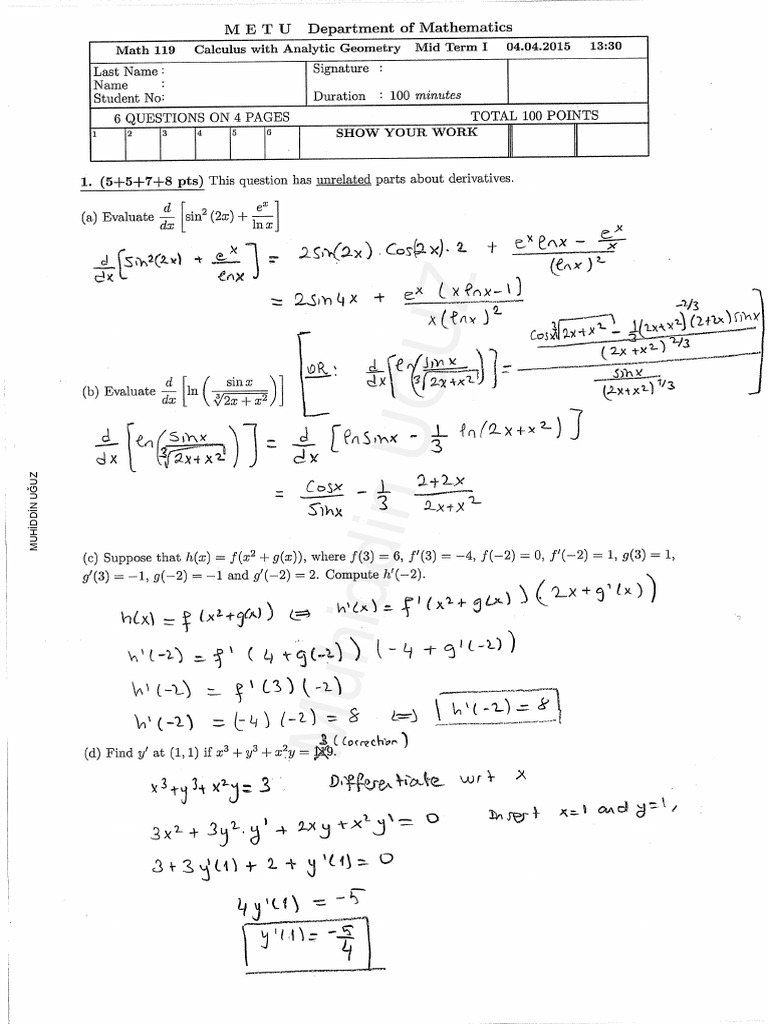 M E T U Department of Mathematics
Math 119 Calculus with Analytic Geometry Mid Term I 04.04.2015 13:30
Last Name :
Name :
Student No:
Signature :
Duration : 100 minutes
6 QUESTIONS ON 4 PAGES TOTAL 100 POINTS
1 2 3 4 5 6 SHOW YOUR WORK
1. (5+5+7+8 pts) This question has unrelated parts about derivatives.
(a) Evaluate d/dx [sin² (2x) + e^x/ln x]
d/dx [Sin²(2x) + e^x/lnx] = 2sin(2x).Cos(2x).2 + (e^x lnx − e^x/x)/(lnx)²
= 2sin4x + e^x (x lnx−1)/(x(lnx)²)
OR: d/dx [ln(sinx/∛(2x+x²))] = ((Cosx ∛(2x+x²) − 1/3 (2x+x²)^(-2/3) (2+2x) sinx)/(2x+x²)^(2/3))/(sinx/(2x+x²)^(1/3))
(b) Evaluate d/dx [ln (sin x/∛(2x + x²))]
d/dx [ln(sinx/∛(2x+x²))] = d/dx [lnsinx − 1/3 ln(2x+x²)]
= Cosx/Sinx − 1/3 (2+2x)/(2x+x²)
(c) Suppose that h(x) = f(x² + g(x)), where f(3) = 6, f′(3) = −4, f(−2) = 0, f′(−2) = 1, g(3) = 1,
g′(3) = −1, g(−2) = −1 and g′(−2) = 2. Compute h′(−2).
h(x) = f(x²+g(x)) ⇔ h'(x) = f'(x²+g(x)) (2x+g'(x))
h'(-2) = f' (4+g(-2)) (-4 + g'(-2))
h'(-2) = f'(3) (-2)
h'(-2) = (-4) (-2) = 8 ⇔ h'(-2) = 8
3 (Correction)
(d) Find y′ at (1, 1) if x³ + y³ + x²y = 
x³+y³+x²y = 3 Differentiate wrt x
3x² + 3y².y' + 2xy + x² y' = 0 Insert x=1 and y=1,
3+3y'(1) + 2 + y'(1) = 0
4y'(1) = -5
y'(1) = -5/4
MUHİDDİN UĞUZ
Muhiddin UĞUZ